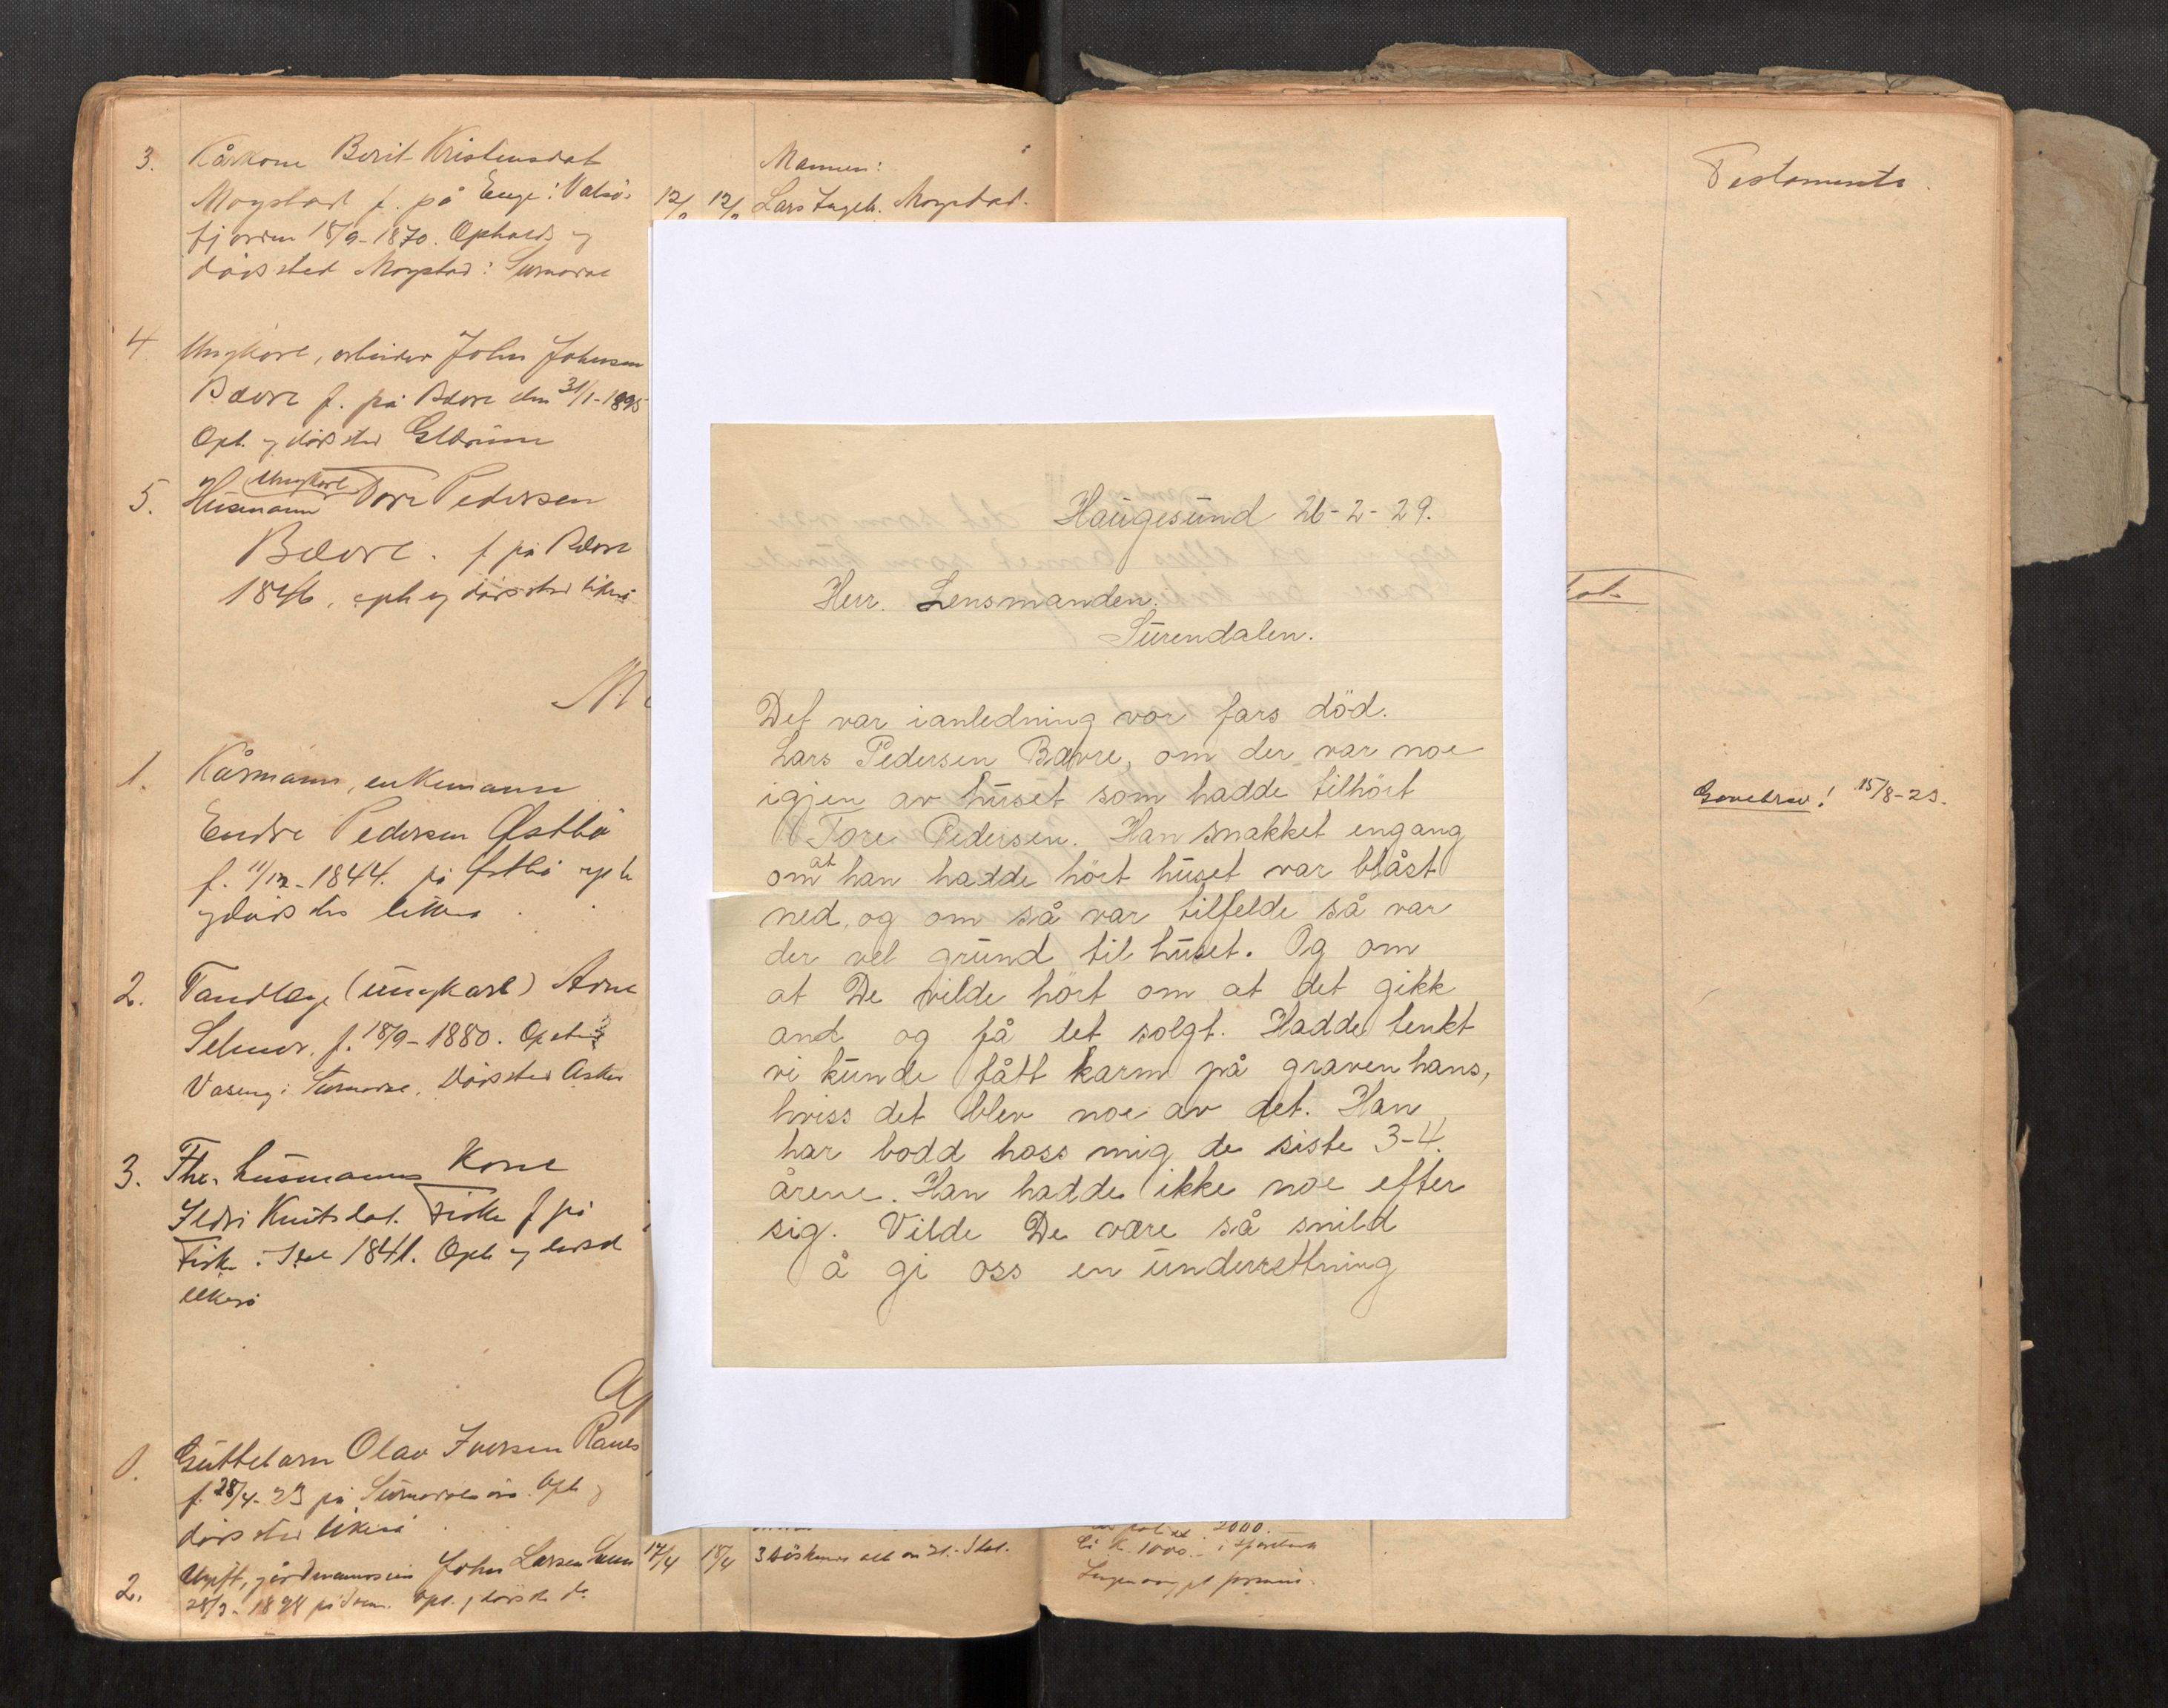 3. Kårkone Berit Kristensdat
Mogstad f. på Enge i Valsö-
fjorden 18/9-1870. Opholds og
dødssted Mogstad i Surnadal
Mannen:
12/ 12/ Lars Ingeb. Mogstad.
4. Ungkarl, arbeider John Johnsen
Bævre f. på Bævre den 31/1-1895
Oph. og dødssted
5. Husmann Ungkarl Tore Pedersen
Bævre. f på Bævre
1846, oph og dødssted likeså
1. Kårmann, enkemann
Endre Pedersen Østbö
f. 11/12-1844. på Østbö oph
og dødssted likeså.
2. Tandlæge (ungkarl) Arne
f. 18/9-1880.
i Surnadal. Dødssted Asker
3. Fhv. husmanns Kone
Ildri Knutsdat. Fiske f på
Fiske 1841. Oph og dødssted
likeså
1. Guttebarn Olav Iversen Ranes
f. 28/4-23 på Oph og
dødssted likeså
2. Ugift, gårdmannssøn John Larsen 17/4 18/4 3 søskend
Haugesund 26-2-29.
Herr. Lensmanden.
Surendalen.
Det var ianledning vor fars död.
Lars Pedersen Bævre, om der var noe
igjen av huset som hadde tilhört
Tore Pedersen. Han snakket engang
om at han hadde hört huset var blåst
ned, og om så var tilfelde så var
der vel grund til huset. Og om
at De vilde hört om at det gikk
and og få det solgt. Hadde tenkt
vi kunde fått karm på graven hans,
hviss det blev noe av det. Han
har bodd hoss mig de siste 3-4
årene. Han hadde ikke noe efter
sig. Vilde De være så snild
å gi oss en underrettning
Testamente.
Gavebrev! 15/8-23.
2000.